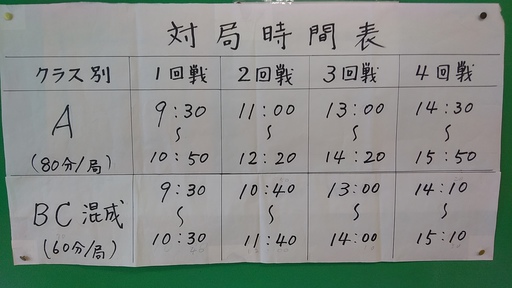 対局時間表
クラス別 1回戦 2回戦 3回戦 4回戦
A 9:30 11:00 13:00 14:30
〜 〜 〜 〜
(80分/局) 10:50 12:20 14:20 15:50
BC混成 9:30 10:40 13:00 14:10
〜 〜 〜 〜
(60分/局) 10:30 11:40 14:00 15:10